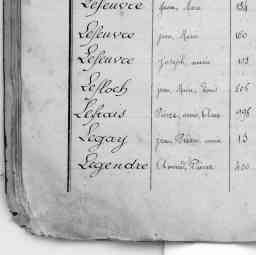 Lefeuvre Jean, Marie 134
Lefeuvre Jean, Marie 60
Lefeuvre Joseph, marie 103
Lefloch Jean, Marie, Louis
Lefrais Pierre, anne, 998
Legay Jean, Pierre, marie 13
Legendre Pierre 400